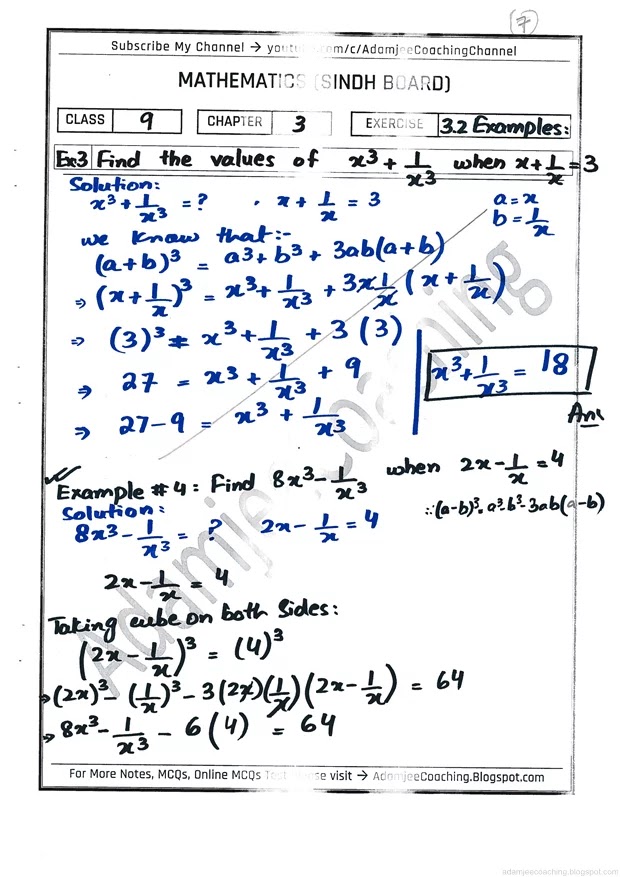 7
Subscribe My Channel → youtu .com/c/AdamjeeCoachingChannel
MATHEMATICS (SINDH BOARD)
CLASS 9 CHAPTER 3 EXERCISE 3.2 Examples:
Ex3 Find the values of x³ + 1/x³ when x + 1/x = 3
Solution:
x³ + 1/x³ = ? , x + 1/x = 3
a = x
b = 1/x
we know that:-
(a+b)³ = a³ + b³ + 3ab(a+b)
⇒ (x + 1/x)³ = x³ + 1/x³ + 3x 1/x (x + 1/x)
⇒ (3)³ = x³ + 1/x³ + 3 (3)
⇒ 27 = x³ + 1/x³ + 9
⇒ 27 - 9 = x³ + 1/x³
x³ + 1/x³ = 18
Ans
Example # 4: Find 8x³ - 1/x³ when 2x - 1/x = 4
Solution:
∵ (a-b)³ = a³-b³-3ab(a-b)
8x³ - 1/x³ = ? 2x - 1/x = 4
2x - 1/x = 4
Taking cube on both sides:
(2x - 1/x)³ = (4)³
⇒ (2x)³ - (1/x)³ - 3(2x)(1/x)(2x - 1/x) = 64
⇒ 8x³ - 1/x³ - 6(4) = 64
Adamjee Coaching
For More Notes, MCQs, Online MCQs Test please visit → AdamjeeCoaching.Blogspot.com
adamjeecoaching.blogspot.com